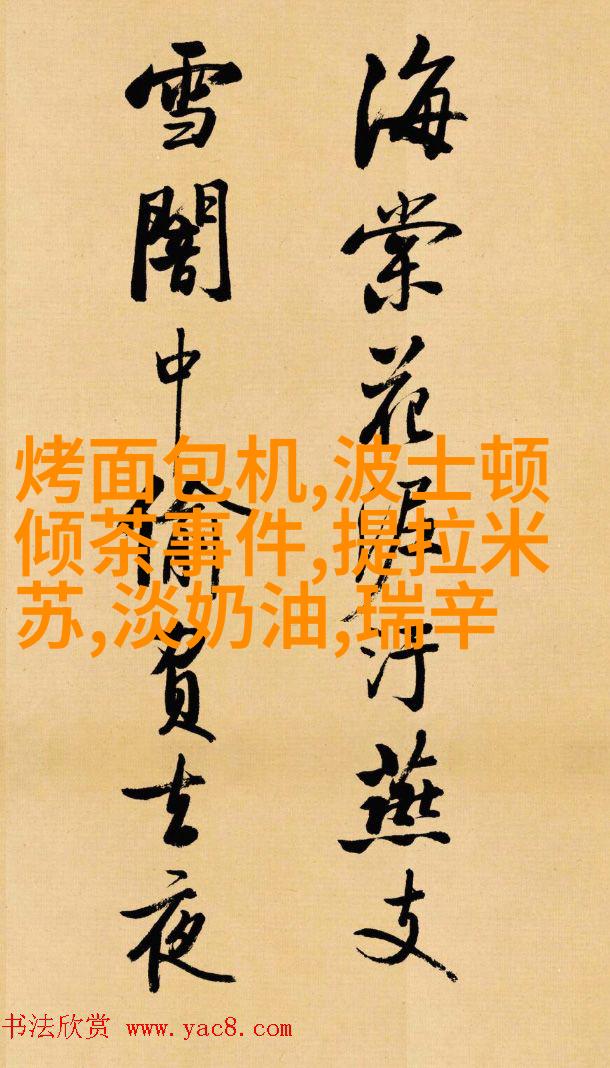 海棠花泥汙燕支
雪闇中偷負去夜
烤面包机,波士顿
倾茶事件,提拉米
苏,淡奶油,瑞辛
书法欣赏 www.yac8.com